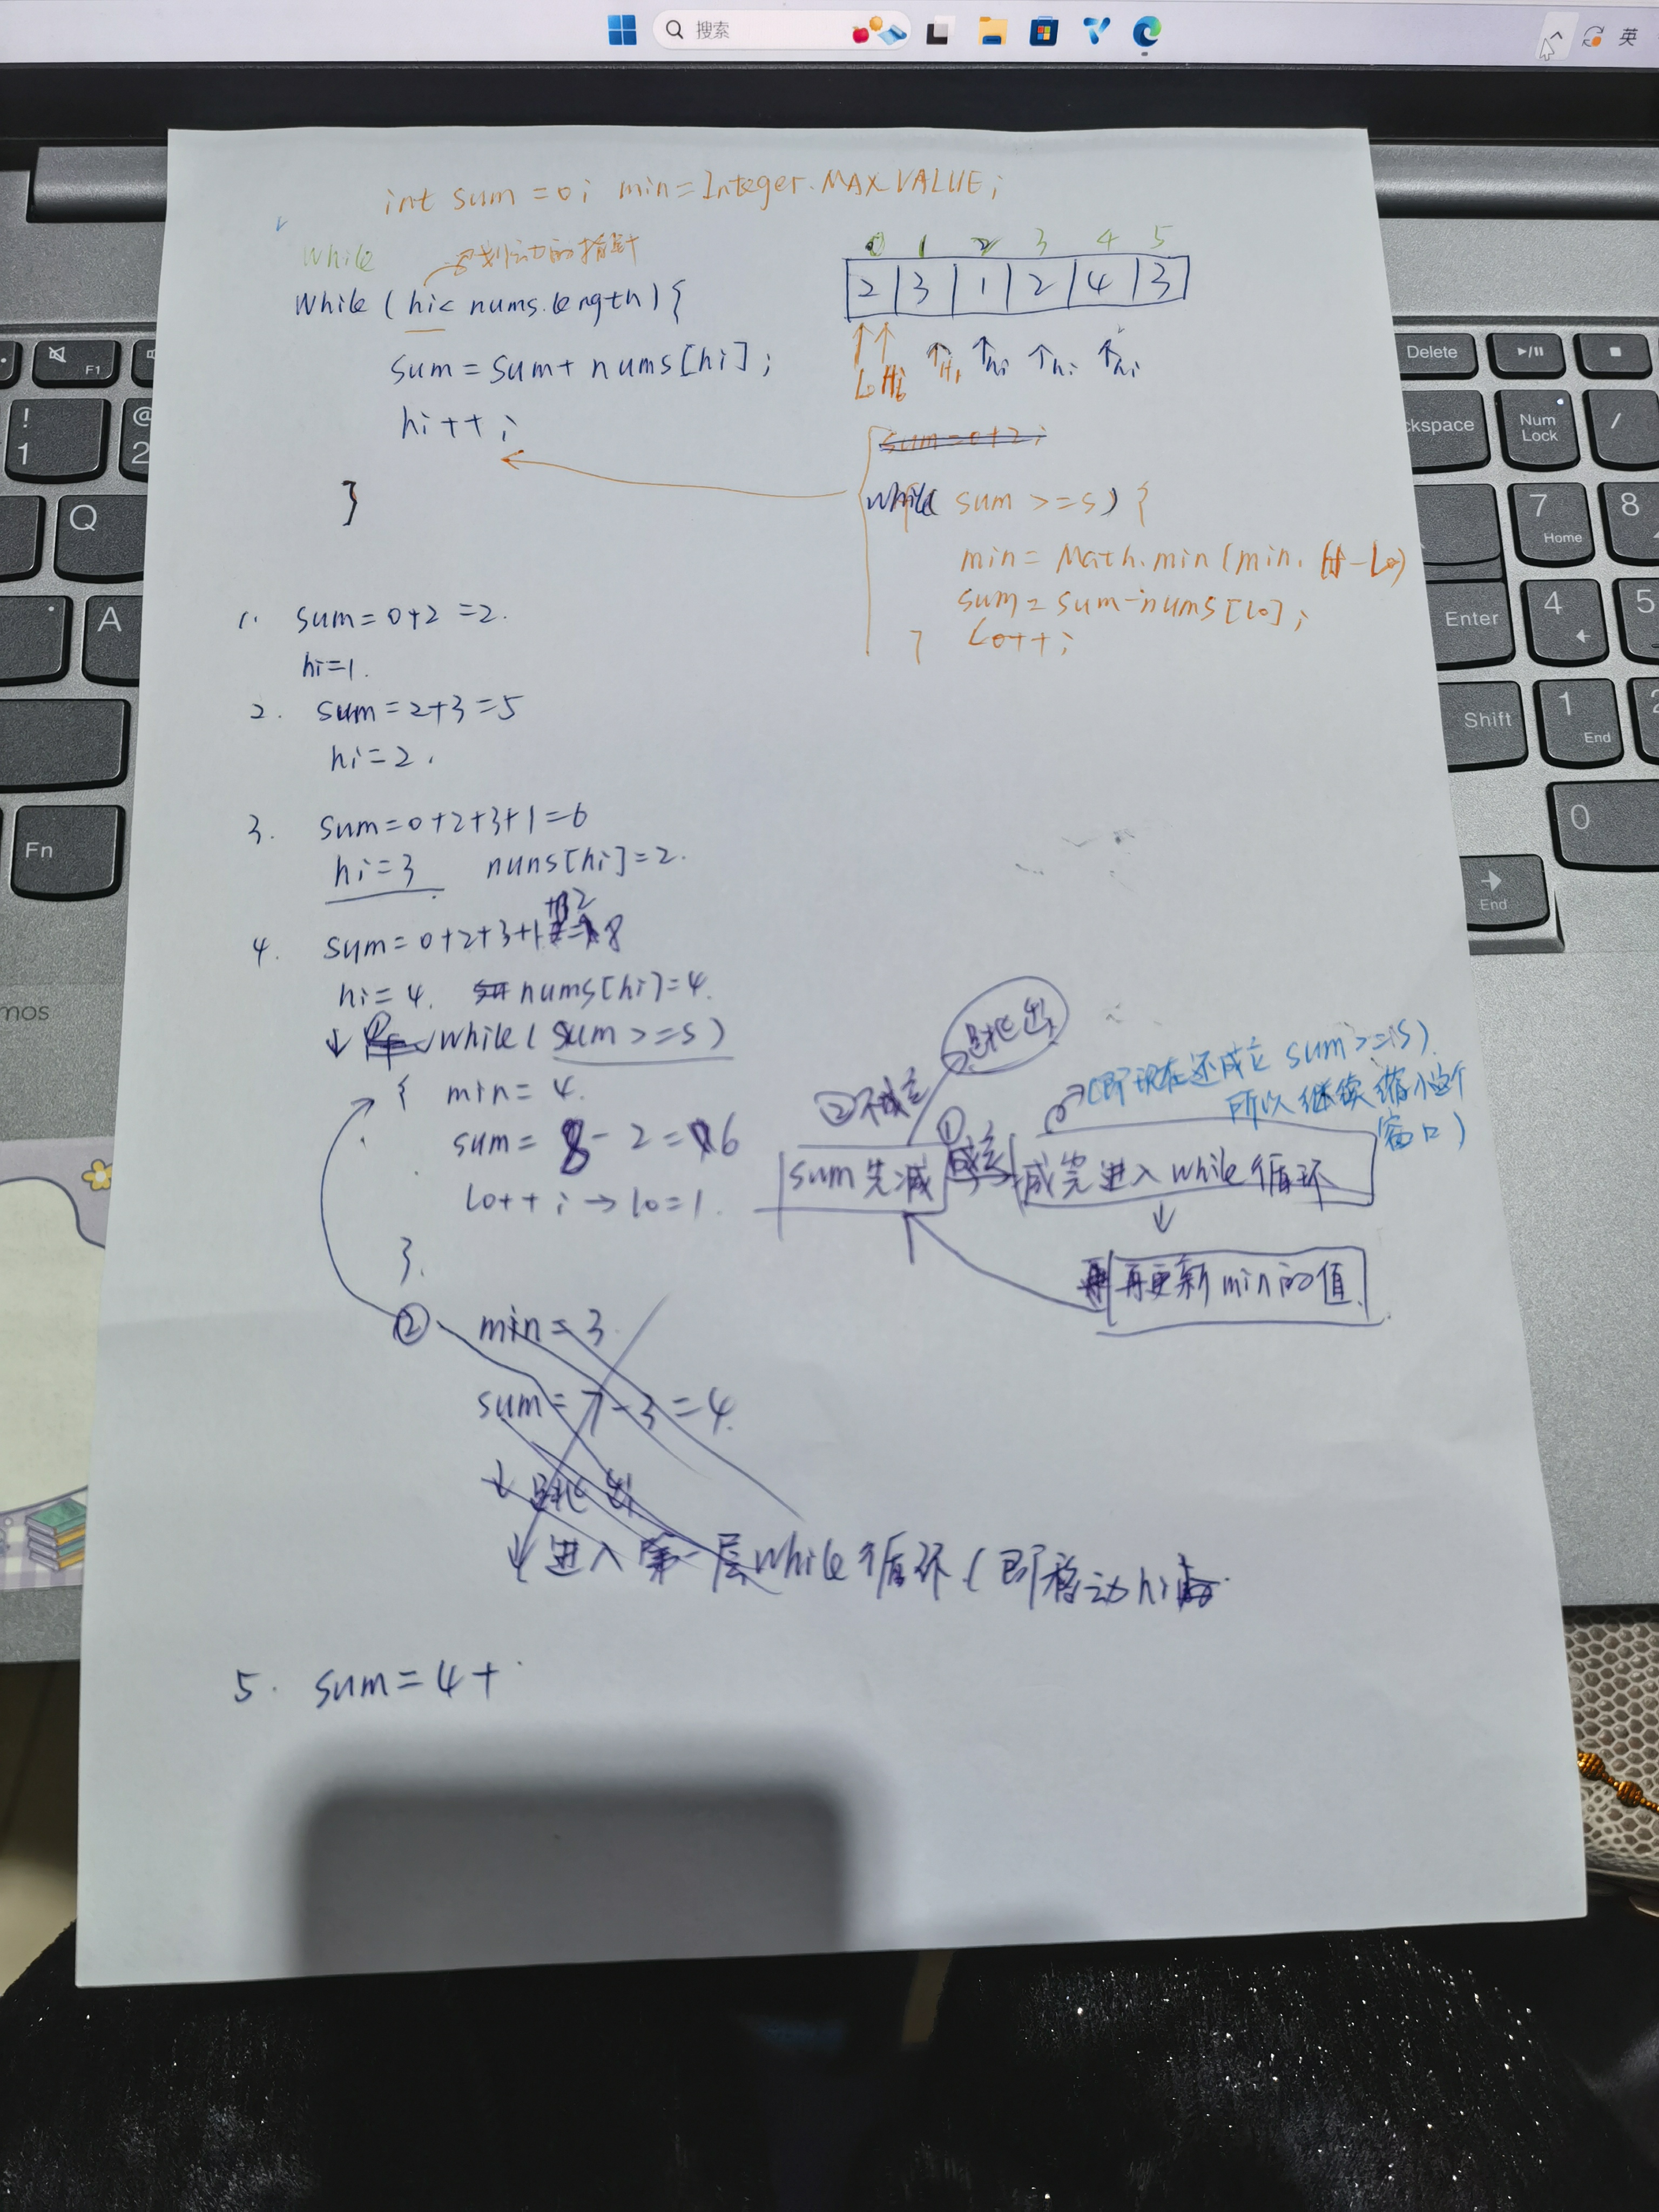 搜索
英
int sum = 0; min = Integer.MAX_VALUE;
while
while (hi < nums.length) {
sum = sum + nums[hi];
hi++;
}
0 1 2 3 4 5
2 3 1 2 4 3
Lo Hi Hi hi hi hi
sum = 0+2;
while( sum >= s) {
min = Math.min(min, Hi-Lo)
sum = sum - nums[lo];
} Lo++;
1. sum = 0+2 = 2.
hi=1.
2. sum = 2+3 = 5
hi = 2.
3. sum = 0+2+3+1 = 6
hi = 3 nums[hi] = 2.
4. sum = 0+2+3+1+2=8
hi = 4. nums[hi] = 4.
↓ while (sum >= s)
{ min = 4.
sum = 8 - 2 = 6
Lo++; → lo=1.
}
②不成立
跳出
①成立
(即现在还成立 sum >= s).
所以继续缩小这个
窗口)
sum先减
减完进入while循环
↓
再更新min的值.
② min = 3.
sum = 7-3 = 4.
↓ 跳出
↓ 进入第一层while循环 (即移动hi
5. sum = 4+
F1
! 1
@ 2
Q
A
Fn
Delete
Num Lock
/
ckspace
7 Home
8
Enter
4
5
Shift
1 End
2
0
End
mos